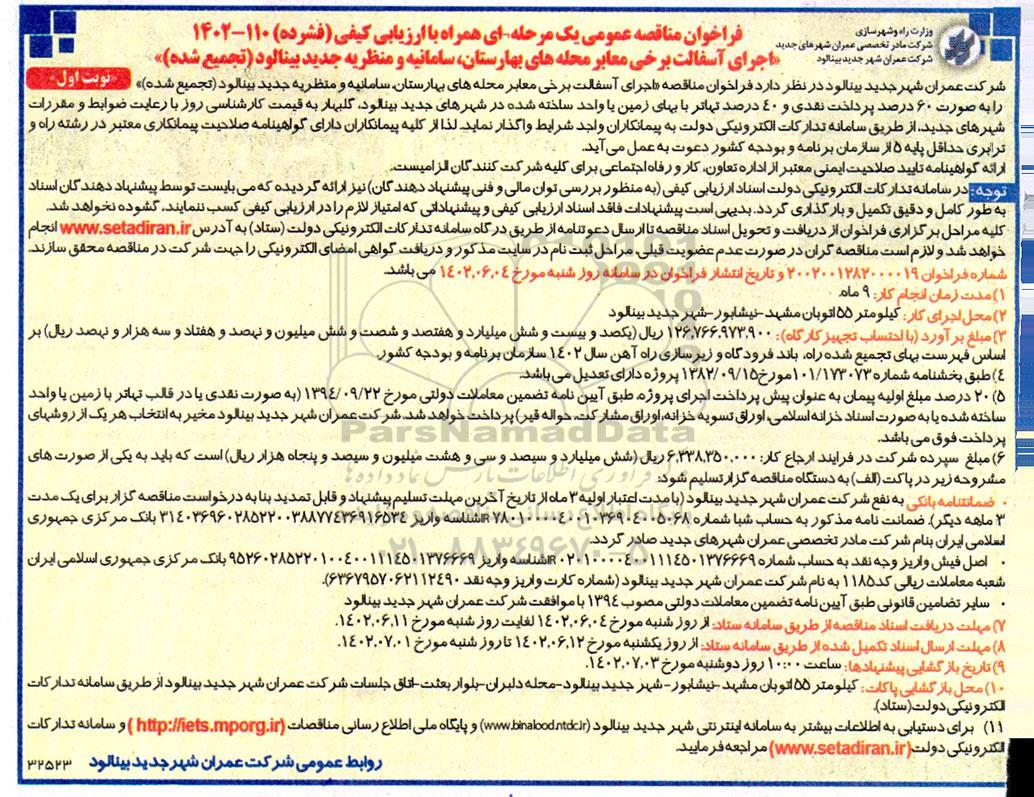 وزارت راه و شهرسازی
شرکت مادر تخصصی عمران شهرهای جدید
شرکت عمران شهر جدید بینالود
فراخوان مناقصه عمومی یک مرحله-ای همراه با ارزیابی کیفی (فشرده) ۱۱۰-۱۴۰۲
«اجرای آسفالت برخی معابر محله های بهارستان، سامانیه و منظریه جدید بینالود (تجمیع شده)»
«نوبت اول»
شرکت عمران شهر جدید بینالود در نظر دارد فراخوان مناقصه «اجرای آسفالت برخی معابر محله های بهارستان، سامانیه و منظریه جدید بینالود (تجمیع شده)»
را به صورت ۶۰ درصد پرداخت نقدی و ۴۰ درصد تهاتر با بهای زمین یا واحد ساخته شده در شهرهای جدید بینالود، گلبهار به قیمت کارشناسی روز با رعایت ضوابط و مقررات
شهرهای جدید، از طریق سامانه تدارکات الکترونیکی دولت به پیمانکاران واجد شرایط واگذار نماید. لذا از کلیه پیمانکاران دارای گواهینامه صلاحیت پیمانکاری معتبر در رشته راه و
ترابری حداقل پایه ۵ از سازمان برنامه و بودجه کشور دعوت به عمل می آید.
ارائه گواهینامه تایید صلاحیت ایمنی معتبر از اداره تعاون، کار و رفاه اجتماعی برای کلیه شرکت کنندگان الزامیست.
توجه: در سامانه تدارکات الکترونیکی دولت اسناد ارزیابی کیفی (به منظور بررسی توان مالی و فنی پیشنهاد دهندگان) نیز ارائه گردیده که می بایست توسط پیشنهاد دهندگان اسناد
به طور کامل و دقیق تکمیل و بارگذاری گردد. بدیهی است پیشنهادات فاقد اسناد ارزیابی کیفی و پیشنهاداتی که امتیاز لازم را در ارزیابی کیفی کسب ننمایند، گشوده نخواهد شد.
کلیه مراحل برگزاری فراخوان از دریافت و تحویل اسناد مناقصه تا ارسال دعوتنامه از طریق درگاه سامانه تدارکات الکترونیکی دولت (ستاد) به آدرس www.setadiran.ir انجام
خواهد شد و لازم است مناقصه گران در صورت عدم عضویت قبلی، مراحل ثبت نام در سایت مذکور و دریافت گواهی امضای الکترونیکی را جهت شرکت در مناقصه محقق سازند.
شماره فراخوان ۲۰۰۲۰۰۱۲۸۲۰۰۰۰۱۹ و تاریخ انتشار فراخوان در سامانه روز شنبه مورخ ۱۴۰۲.۰۶.۰۴ می باشد.
۱) مدت زمان انجام کار: ۹ ماه.
۲) محل اجرای کار: کیلومتر ۵۵ اتوبان مشهد-نیشابور-شهر جدید بینالود
۳) مبلغ برآورد (با احتساب تجهیز کارگاه): ۱۲۶.۷۶۶.۹۷۳.۹۰۰ ریال (یکصد و بیست و شش میلیارد و هفتصد و شصت و شش میلیون و نهصد و هفتاد و سه هزار و نهصد ریال) بر
اساس فهرست بهای تجمیع شده راه، باند فرودگاه و زیرسازی راه آهن سال ۱۴۰۲ سازمان برنامه و بودجه کشور.
۴) طبق بخشنامه شماره ۱۰۱/۱۷۳۰۷۳ مورخ ۱۳۸۲/۰۹/۱۵ پروژه دارای تعدیل می باشد.
۵) ۲۰ درصد مبلغ اولیه پیمان به عنوان پیش پرداخت اجرای پروژه، طبق آیین نامه تضمین معاملات دولتی مورخ ۱۳۹۴/۰۹/۲۲ (به صورت نقدی یا در قالب تهاتر با زمین یا واحد
ساخته شده یا به صورت اسناد خزانه اسلامی، اوراق تسویه خزانه، اوراق مشارکت، حواله قیر) پرداخت خواهد شد. شرکت عمران شهر جدید بینالود مخیر به انتخاب هر یک از روشهای
پرداخت فوق می باشد.
۶) مبلغ سپرده شرکت در فرایند ارجاع کار: ۶.۳۳۸.۳۵۰.۰۰۰ ریال (شش میلیارد و سیصد و سی و هشت میلیون و سیصد و پنجاه هزار ریال) است که باید به یکی از صورت های
مشروحه زیر در پاکت (الف) به دستگاه مناقصه گزار تسلیم شود:
• ضمانتنامه بانکی به نفع شرکت عمران شهر جدید بینالود (با مدت اعتبار اولیه ۳ ماه از تاریخ آخرین مهلت تسلیم پیشنهاد و قابل تمدید بنا به درخواست مناقصه گزار برای یک مدت
۳ ماهه دیگر). ضمانت نامه مذکور به حساب شبا شماره IR۷۸۰۱۰۰۰۰۴۰۰۱۰۳۶۹۰۴۰۰۵۰۶۸ شناسه واریز ۳۱۴۰۳۶۹۶۰۲۸۵۲۲۰۰۳۸۸۷۷۴۳۶۹۱۶۵۳۴ بانک مرکزی جمهوری
اسلامی ایران بنام شرکت مادر تخصصی عمران شهرهای جدید صادر گردد.
• اصل فیش واریز وجه نقد به حساب شماره IR۰۲۰۱۰۰۰۰۴۰۰۱۱۱۴۵۰۱۳۷۶۶۶۹ شناسه واریز ۹۵۲۶۰۲۸۵۲۲۰۱۰۰۴۰۰۱۱۱۴۵۰۱۳۷۶۶۶۹ بانک مرکزی جمهوری اسلامی ایران
شعبه معاملات ریالی کد ۱۱۸۵ به نام شرکت عمران شهر جدید بینالود (شماره کارت واریز وجه نقد ۶۳۶۷۹۵۷۰۶۲۱۱۲۴۹۰).
• سایر تضامین قانونی طبق آیین نامه تضمین معاملات دولتی مصوب ۱۳۹۴ با موافقت شرکت عمران شهر جدید بینالود
۷) مهلت دریافت اسناد مناقصه از طریق سامانه ستاد: از روز شنبه مورخ ۱۴۰۲.۰۶.۰۴ لغایت روز شنبه مورخ ۱۴۰۲.۰۶.۱۱.
۸) مهلت ارسال اسناد تکمیل شده از طریق سامانه ستاد: از روز یکشنبه مورخ ۱۴۰۲.۰۶.۱۲ تا روز شنبه مورخ ۱۴۰۲.۰۷.۰۱.
۹) تاریخ بازگشایی پیشنهادها: ساعت ۱۰:۰۰ روز دوشنبه مورخ ۱۴۰۲.۰۷.۰۳.
۱۰) محل بازگشایی پاکات: کیلومتر ۵۵ اتوبان مشهد-نیشابور-شهر جدید بینالود-محله دلبران-بلوار بعثت-اتاق جلسات شرکت عمران شهر جدید بینالود از طریق سامانه تدارکات
الکترونیکی دولت (ستاد).
۱۱) برای دستیابی به اطلاعات بیشتر به سامانه اینترنتی شهر جدید بینالود (www.binalood.ntdc.ir) و پایگاه ملی اطلاع رسانی مناقصات (http://iets.mporg.ir) و سامانه تدارکات
الکترونیکی دولت (www.setadiran.ir) مراجعه فرمایید.
روابط عمومی شرکت عمران شهر جدید بینالود
۳۲۵۲۳
ParsNamadData
۰۲۱-۸۸۳۴۹۶۷۰-۵